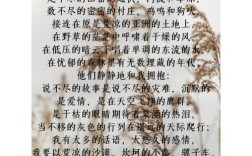 数不尽的密密的村庄，鸡鸣和狗吠，
接连在原是荒凉的亚洲的土地上，
在野草的茫茫中呼啸着干燥的风，
在低压的暗云下唱着单调的东流的水，
在忧郁的森林里有无数埋藏的年代，
他们静静地和我拥抱：
说不尽的故事是说不尽的灾难，沉默的
是爱情，是在天空飞翔的鹰群，
是干枯的眼睛期待着泉涌的热泪，
当不移的灰色的行列在遥远的天际爬行；
我有太多的话语，太悠久的感情，
我要以荒凉的沙漠，坎坷的小路，骡子车，